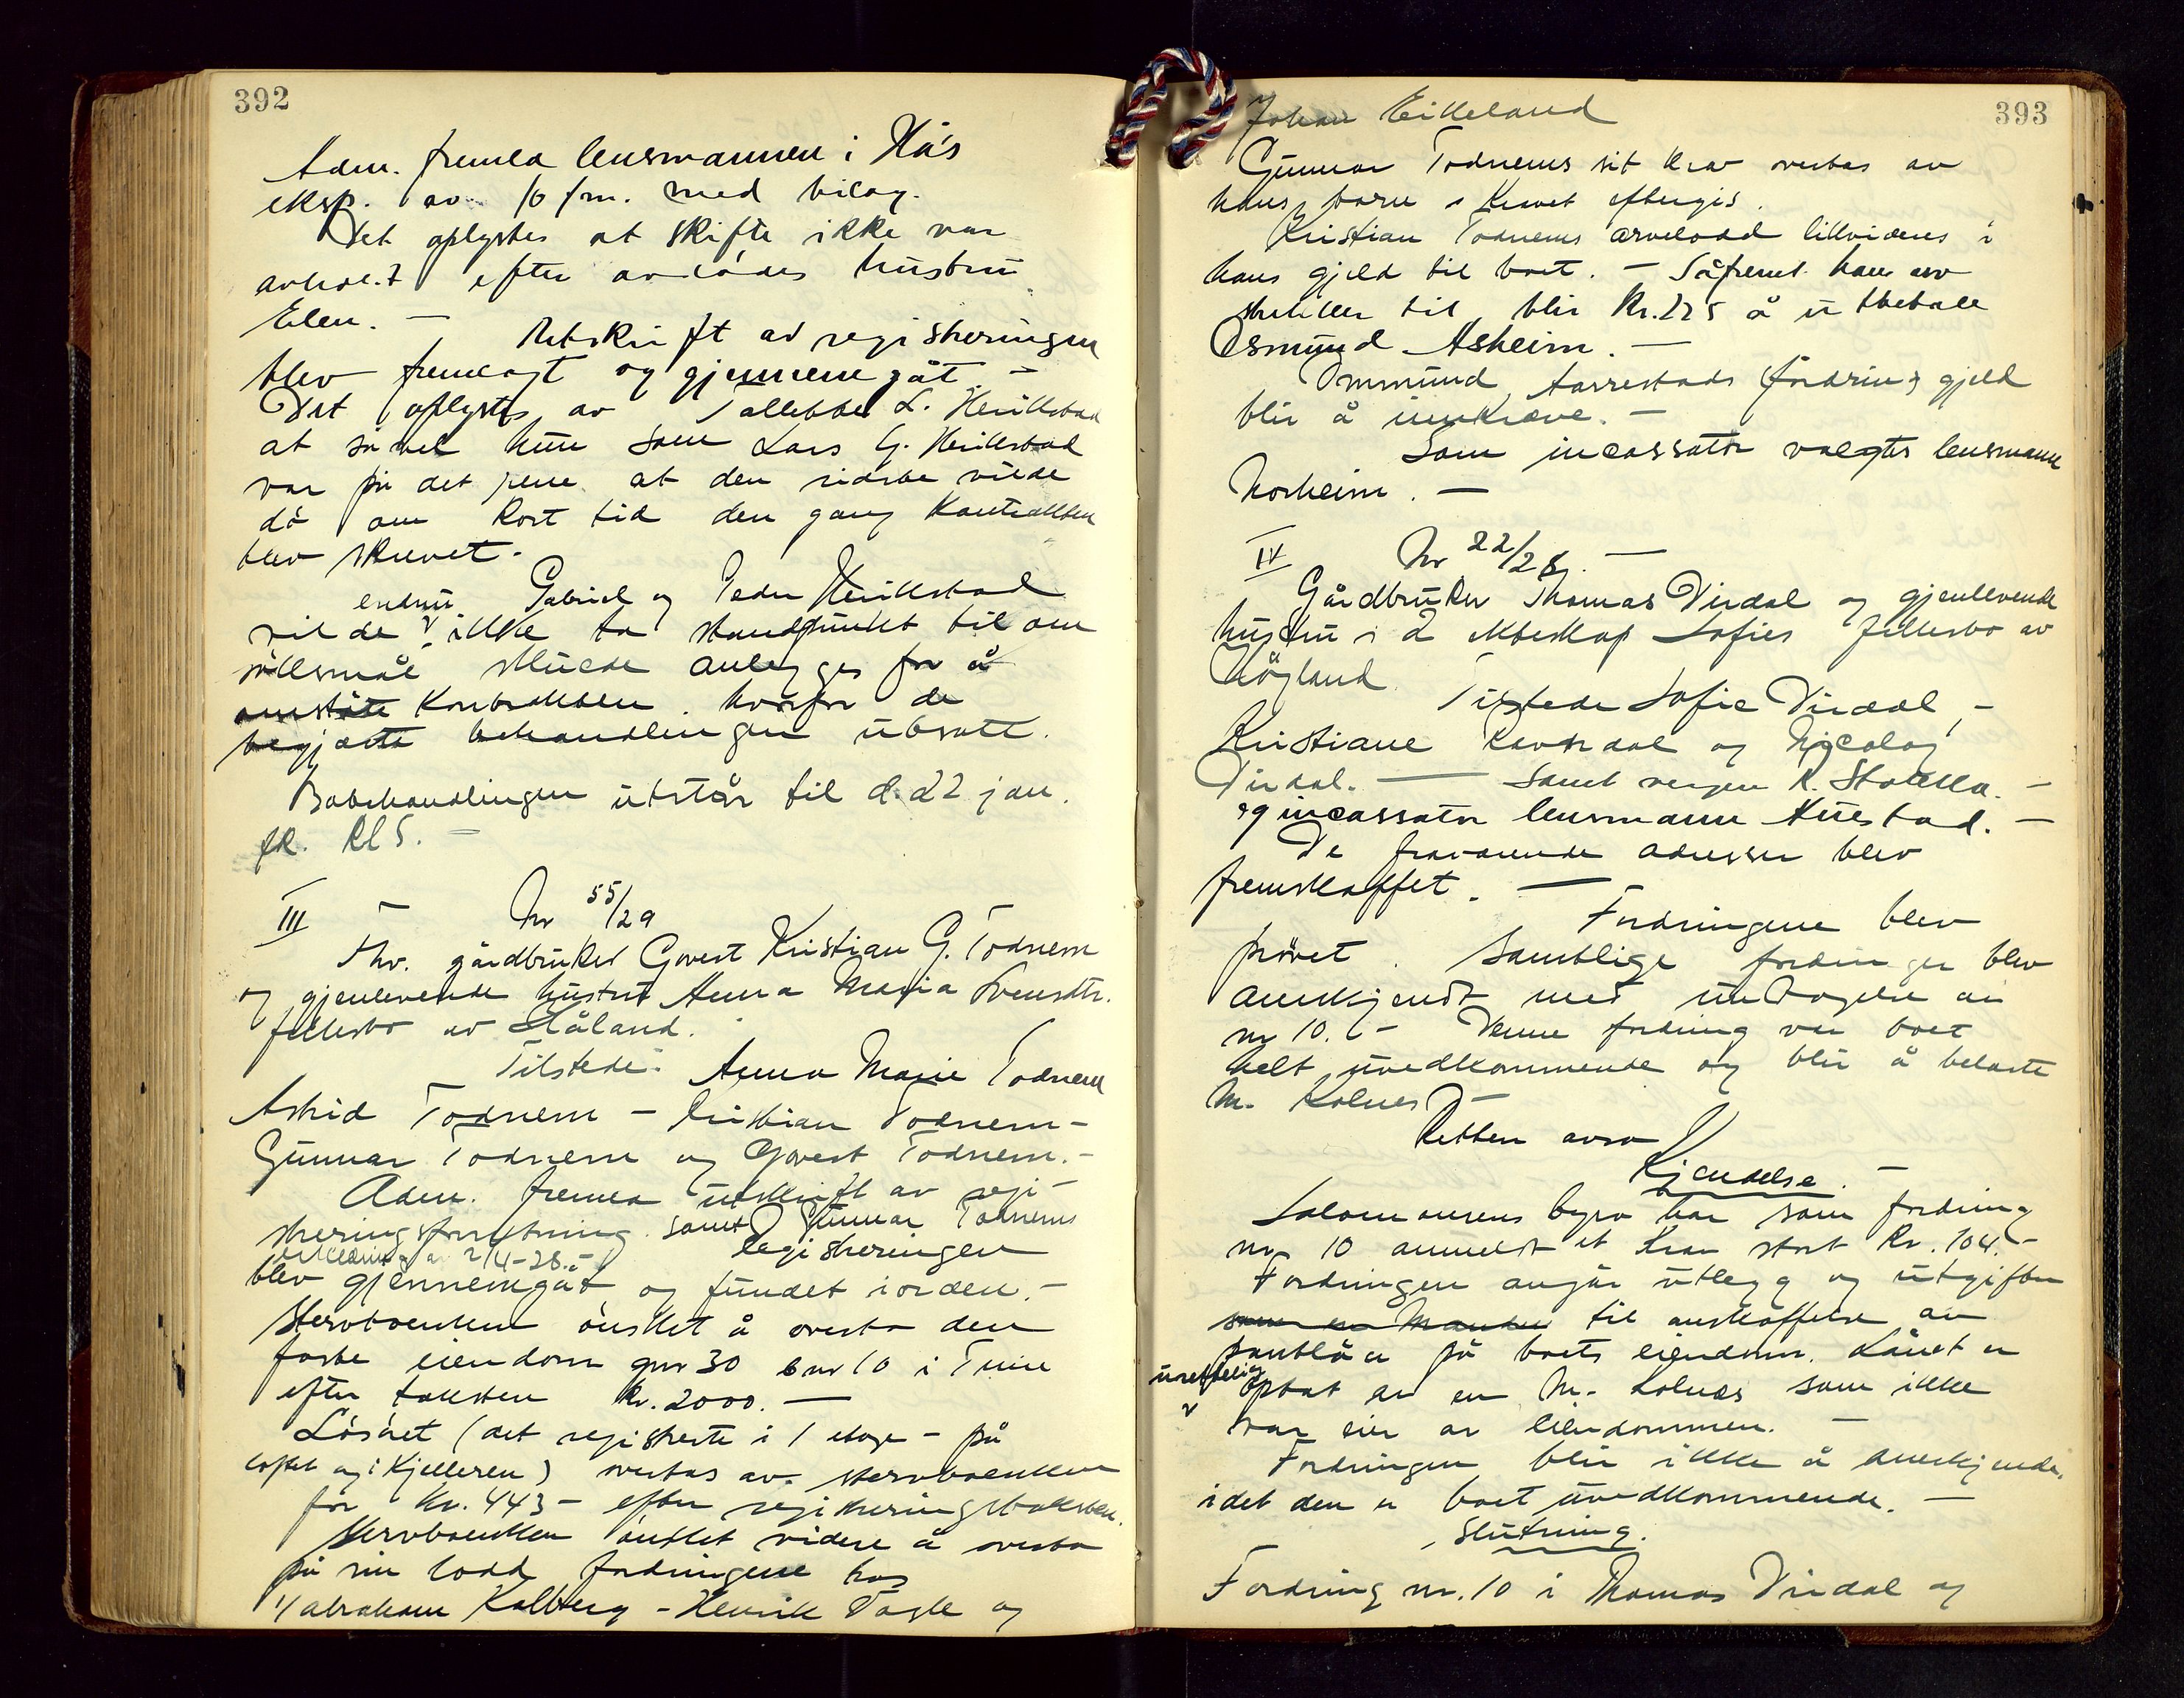 392
Adm. fremla lensmannen i Hå's
eksp. av 10 f.m. med bilag.
Det oplystes at skifte ikke var
avholdt efter avdødes hustru
Elen. —
Utskrift av registreringen
blev fremlagt og gjennemgåt —
Det oplystes av L. Herikstad
at såvel hun som Lars G. Herikstad
var på det rene at den sidste vilde
dø om kort tid den gang kontrakten
blev skrevet.
Gabriel og Peder Herikstad
vilde endnu ikke ta standpunkt til om
søksmål skulde anlegges for å
omstøte kontrakten hvorfor de
begjærte behandlingen utsatt.
Bobehandlingen utstår til d. 22 jan.
fk. kl 5. —
III Nr 55/29
Fhv. gårdbruker Govert Kristian G. Todnem
og gjenlevende hustru Anna Maria Svensdtr.
fellesbo av Håland.
Tilstede: Anna Marie Todnem
Astrid Todnem — Kristian Todnem —
Gunnar Todnem og Govert Todnem. —
Adm. fremla utskrift av regi-
streringsforretning samt Gunnar Todnems
erklæring av 2/4-28. — Registreringen
blev gjennemgåt og fundet i orden. —
Stervboenken ønsket å overta den
faste eiendom gnr 30 bnr 10 i Tune
efter taksten kr. 2000. —
Løsøret (det registrerte i 1 etage — på
loftet og i kjelleren) overtas av stervboenken
for kr. 443 — efter registreringstaksten.
Stervboenken ønsket videre å overta
på sin lodd fordringene hos
1/ Abraham Kalberg — Henrik Tagle og
393
Johan Eikeland
Gunnar Todnems sit krav overtas av
hans barn Kravet eftergis.
Kristian Todnems arvelodd likvideres i
hans gjeld til boet. — Såfremt hans arv
strekker til blir kr. 225 å utbetale
Osmund Asheim. —
Ommund Aarrestads fordring gjeld
blir å innkræve. —
Som incassator valgtes lensmann
Norheim. —
IV Nr 22/28. —
Gårdbruker Thomas Virdal og gjenlevende
hustru i 2 ekteskap Sofies fellesbo av
Høgland.
Tilstede Sofie Virdal, —
Kristiane og Nicolay
Virdal. — Samt vergen R. Stokka. —
og incassator lensmann Huestad. —
De fraværende adresser blev
fremskaffet. —
Fordringene blev
prøvet. Samtlige fordringer blev
anerkjendt med undtagelse av
nr 10. — Denne fordring var boet
helt uvedkommende og blir å belaste
M. Kolnes —
Retten avsa
Kjendelse. —
Salomonsens byrå har som fordring
nr 10 anmeldt et krav stort kr. 104. —
Fordringen angår utlegg og utgifter
til anskaffelse av
pantlån på boets eiendom. Lånet er
urettelig optat av en M. Kolnes som ikke
var eier av eiendommen. —
Fordringen blir ikke å anerkjende,
idet den er boet uvedkommende. —
Slutning.
Fordring nr. 10 i Thomas Virdal og